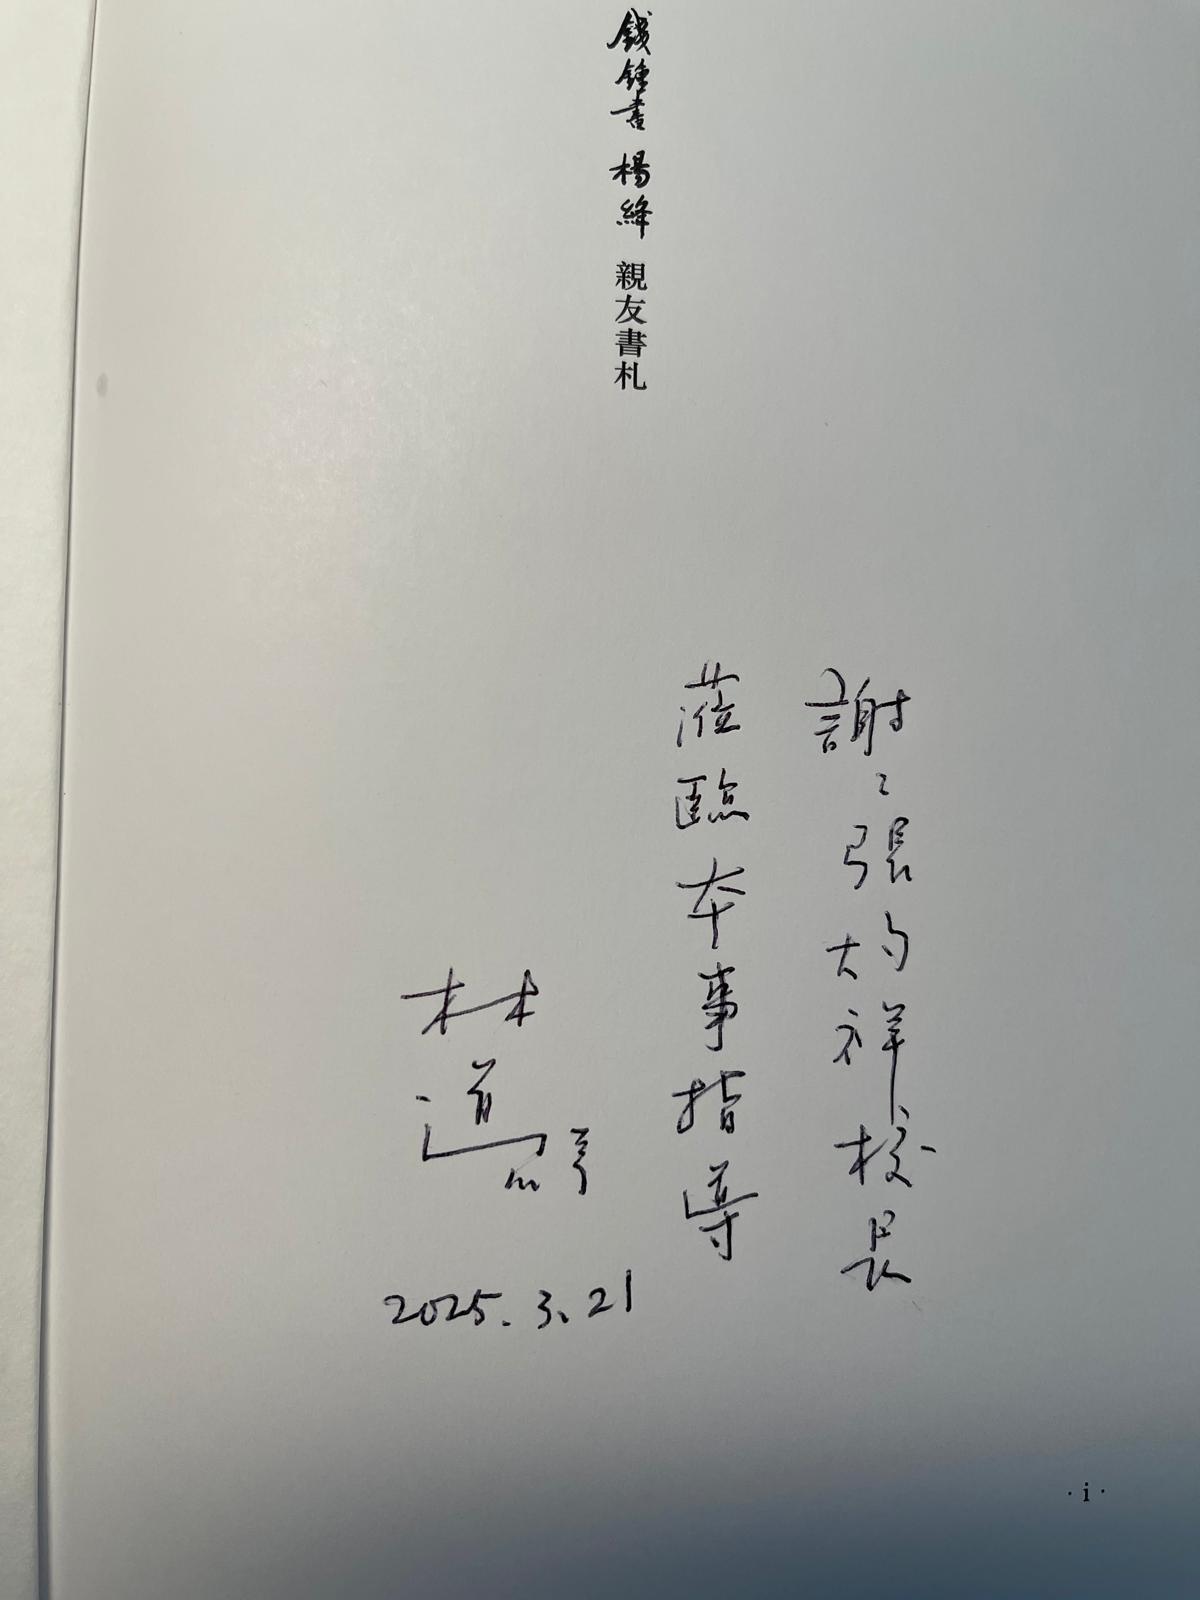 錢鍾書 楊絳 親友書札
謝〻張灼祥校長
蒞臨本事指導
林道群
2025.3.21
· i ·